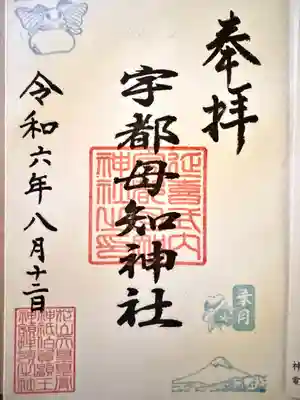 奉拝
延喜式内
宇都母知神社
神社之印
令和六年八月十二日
葉月